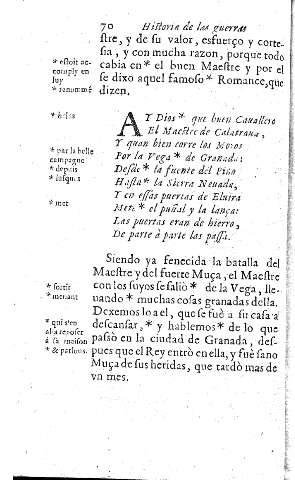 70 Historia de las guerras
stre, y de su valor, esfuerço y corte-
sia, y con mucha razon, porque todo
* estoit ac-
comply en
luy
cabia en* el buen Maestre y por el
se dixo aquel famoso* Romance, que
* renommé
dizen.
AY Dios* que buen Cavallero
El Maestre de Calatrava,
Y quan bien corre los Moros
* par la belle
campagne
Por la Vega* de Granada:
* depuis
Desde* la fuente del Pino
* jusqu'a
Hasta* la Sierra Nevada,
Y en essas puertas de Elvira
* met
Mete* el puñal y la lança:
Las puertas eran de hierro,
De parte à parte las passa.
Siendo ya fenecida la batalla del
Maestre y del fuerte Muça, el Maestre
* sortit
con los suyos se saliò* de la Vega, lle-
* menant
vando* muchas cosas granadas della.
Dexemoslo a el, que se fuè a su casa a
* qui s'en
alla reposer
à sa maison
descansar,* y hablemos* de lo que
* & parlons.
passò en la ciudad de Granada, des-
pues que el Rey entrò en ella, y fuè sano
Muça de sus heridas, que tardò mas de
vn mes.